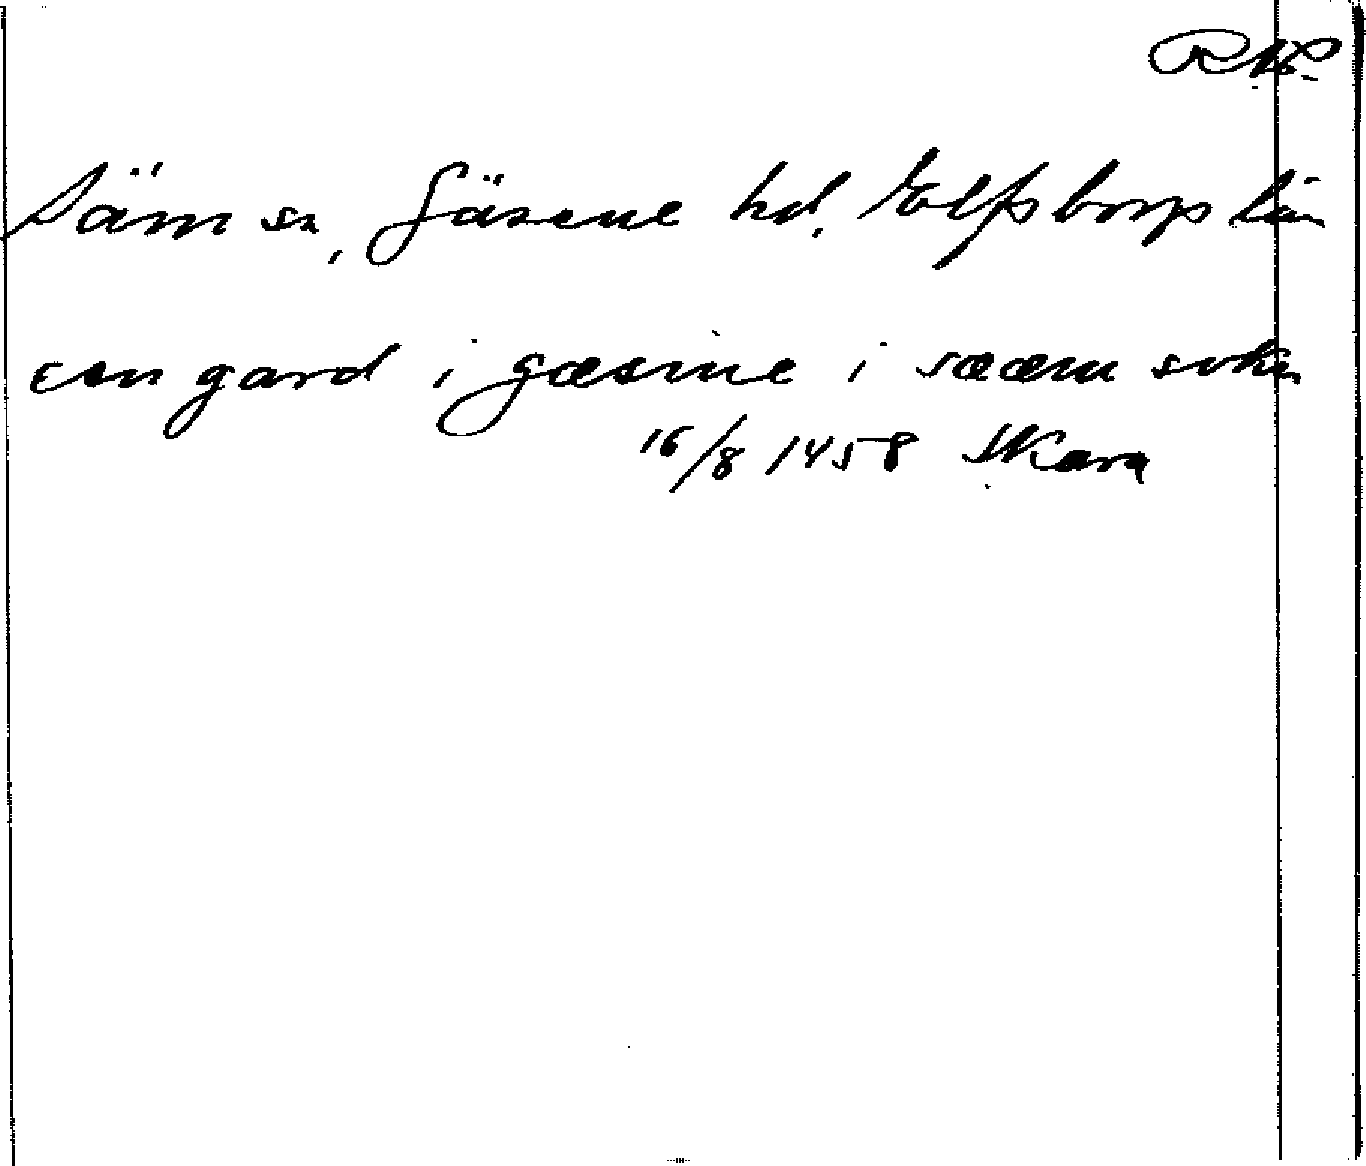 RAP
Säm sn, Gäsene hd, Elfsborgs län
een gard i gæsine i sææm sokn
16/8 1458 Skara